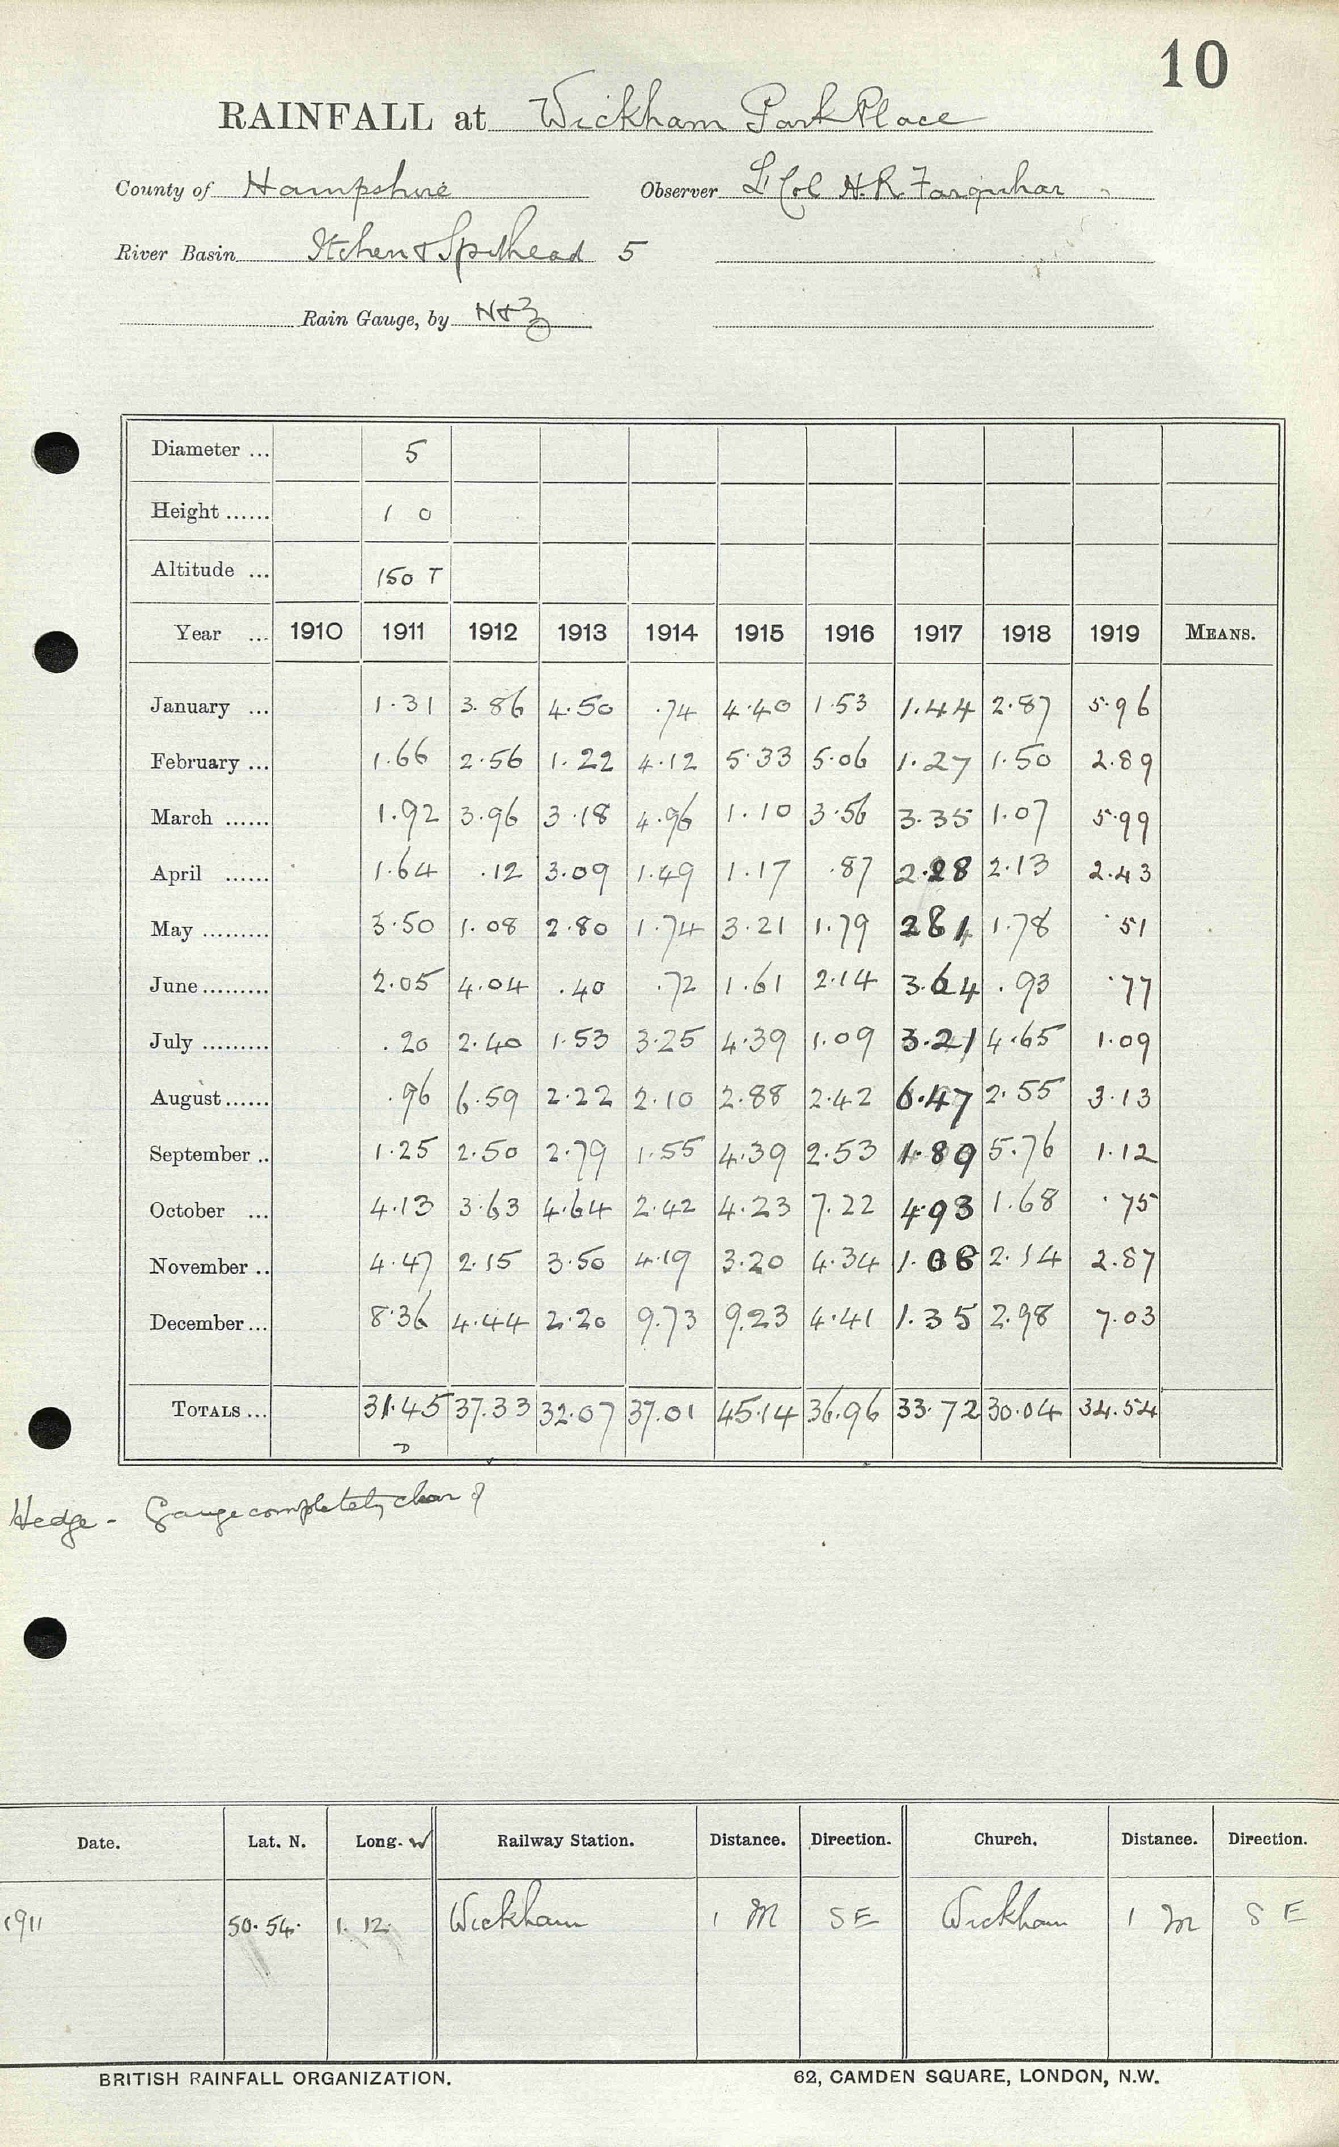 10
RAINFALL at Wickham Park Place
County of Hampshire Observer Lt Col H. R. Farquhar
River Basin Itchen & Spithead 5
Rain Gauge, by N & Z
Diameter ... 5
Height ...... 1 0
Altitude ... 150 T
Year ... 1910 1911 1912 1913 1914 1915 1916 1917 1918 1919 MEANS.
January ... 1.31 3.86 4.50 .74 4.40 1.53 1.44 2.87 5.96
February ... 1.66 2.56 1.22 4.12 5.33 5.06 1.27 1.50 2.89
March ...... 1.92 3.96 3.18 4.96 1.10 3.56 3.35 1.07 5.99
April ...... 1.64 .12 3.09 1.49 1.17 .87 2.28 2.13 2.43
May ......... 3.50 1.08 2.80 1.74 3.21 1.79 281 1.78 .51
June ......... 2.05 4.04 .40 .72 1.61 2.14 3.64 .93 .77
July ......... .20 2.40 1.53 3.25 4.39 1.09 3.21 4.65 1.09
August ...... .96 6.59 2.22 2.10 2.88 2.42 6.47 2.55 3.13
September .. 1.25 2.50 2.79 1.55 4.39 2.53 1.89 5.76 1.12
October ... 4.13 3.63 4.64 2.42 4.23 7.22 4.93 1.68 .75
November .. 4.47 2.15 3.50 4.19 3.20 4.34 1.08 2.14 2.87
December ... 8.36 4.44 2.20 9.73 9.23 4.41 1.35 2.98 7.03
TOTALS ... 31.45 37.33 32.07 37.01 45.14 36.96 33.72 30.04 34.54
D
Hedge - Gauge completely clear of
Date. Lat. N. Long. W Railway Station. Distance. Direction. Church. Distance. Direction.
1911 50.54. 1. 12. Wickham 1 M SE Wickham 1 M S E
BRITISH RAINFALL ORGANIZATION. 62, CAMDEN SQUARE, LONDON, N.W.